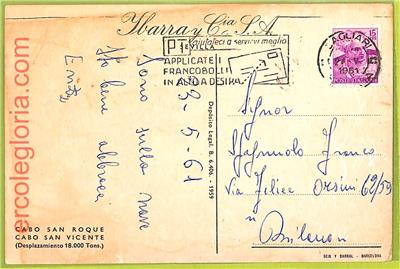 Ybarra y Cía S.A.
SEVILLA
aiutateci a servirvi meglio
APPLICATE I
FRANCOBOLLI
IN ALTO A DESTRA
CAGLIARI
1961
15
POSTE ITALIANE
23-5-61
Sono sulla nave
Sto bene abbracci
Depósito Legal. B. 6.406 - 1959
Signor
Franco
Via Felice Orsini 62/59
Milano
CABO SAN ROQUE
CABO SAN VICENTE
(Desplazamiento 18.000 Tons.)
SEIX Y BARRAL - BARCELONA
ercolegloria.com